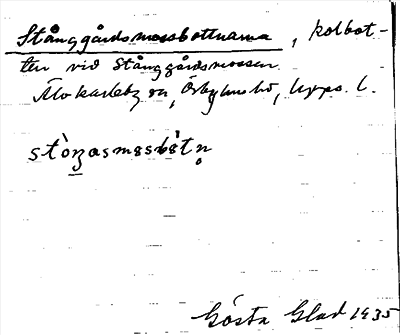 Stånggårdsmossbottnarna, kolbot-
ten vid Stånggårdsmossen.
Älvkarleby sn, Örbyhus hd, Upps. l.
stòŋasmɷsbòtn̥
Gösta Glad 1935